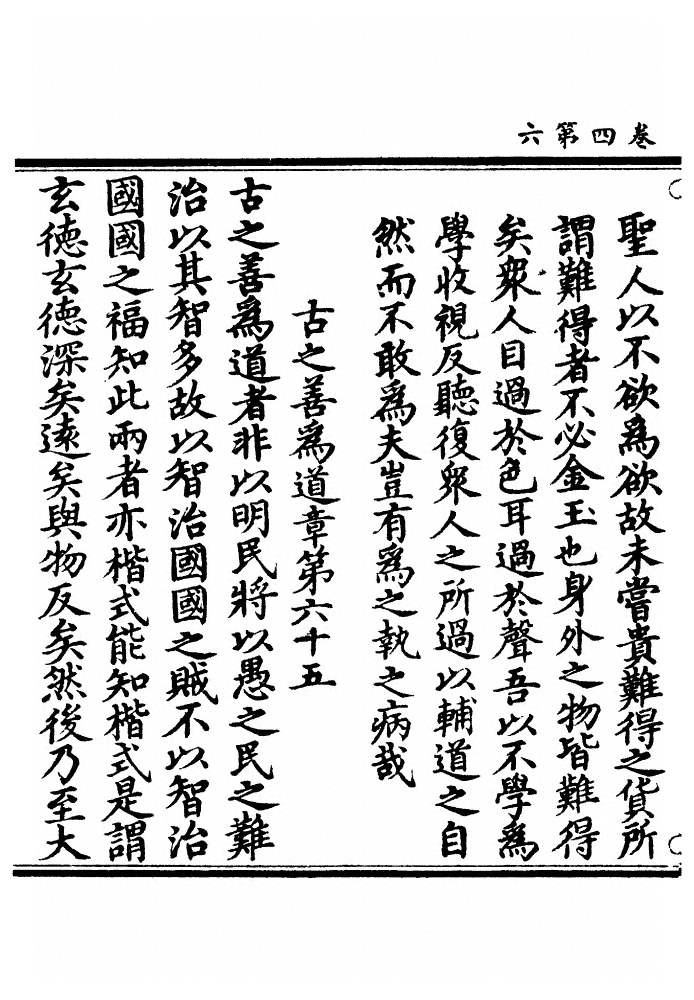 卷四第六
聖人以不欲為欲故未嘗貴難得之貨所
謂難得者不必金玉也身外之物皆難得
矣衆人目過於色耳過於聲吾以不學為
學收視反聽復衆人之所過以輔道之自
然而不敢為夫豈有為之執之病哉
古之善為道章第六十五
古之善為道者非以明民將以愚之民之難
治以其智多故以智治國國之賊不以智治
國國之福知此兩者亦楷式能知楷式是謂
玄德玄德深矣遠矣與物反矣然後乃至大